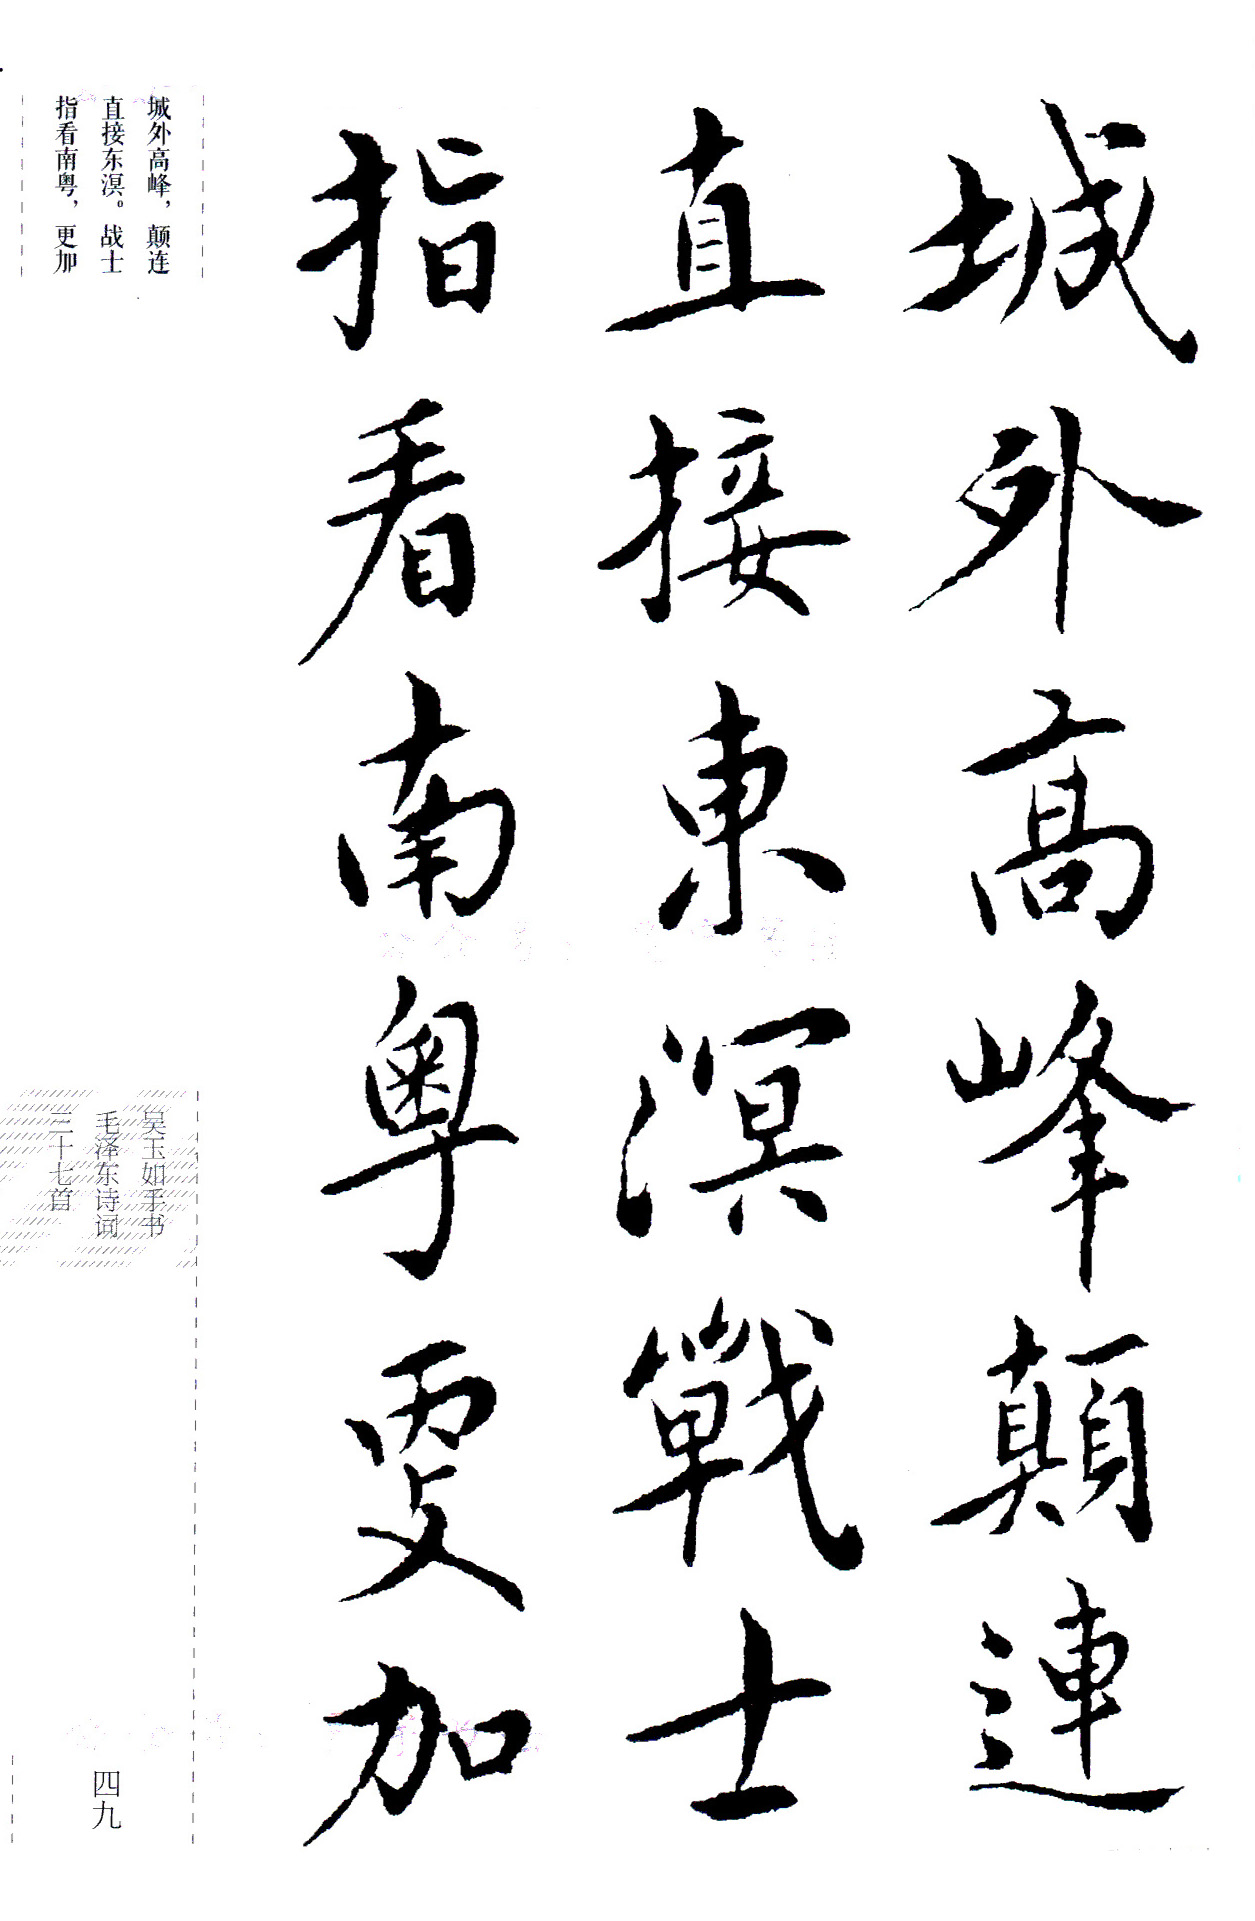 城外高峰顛連
直接東溟戰士
指看南粵更加
城外高峰，颠连
直接东溟。战士
指看南粤，更加
吴玉如手书
毛泽东诗词
三十七首
四九